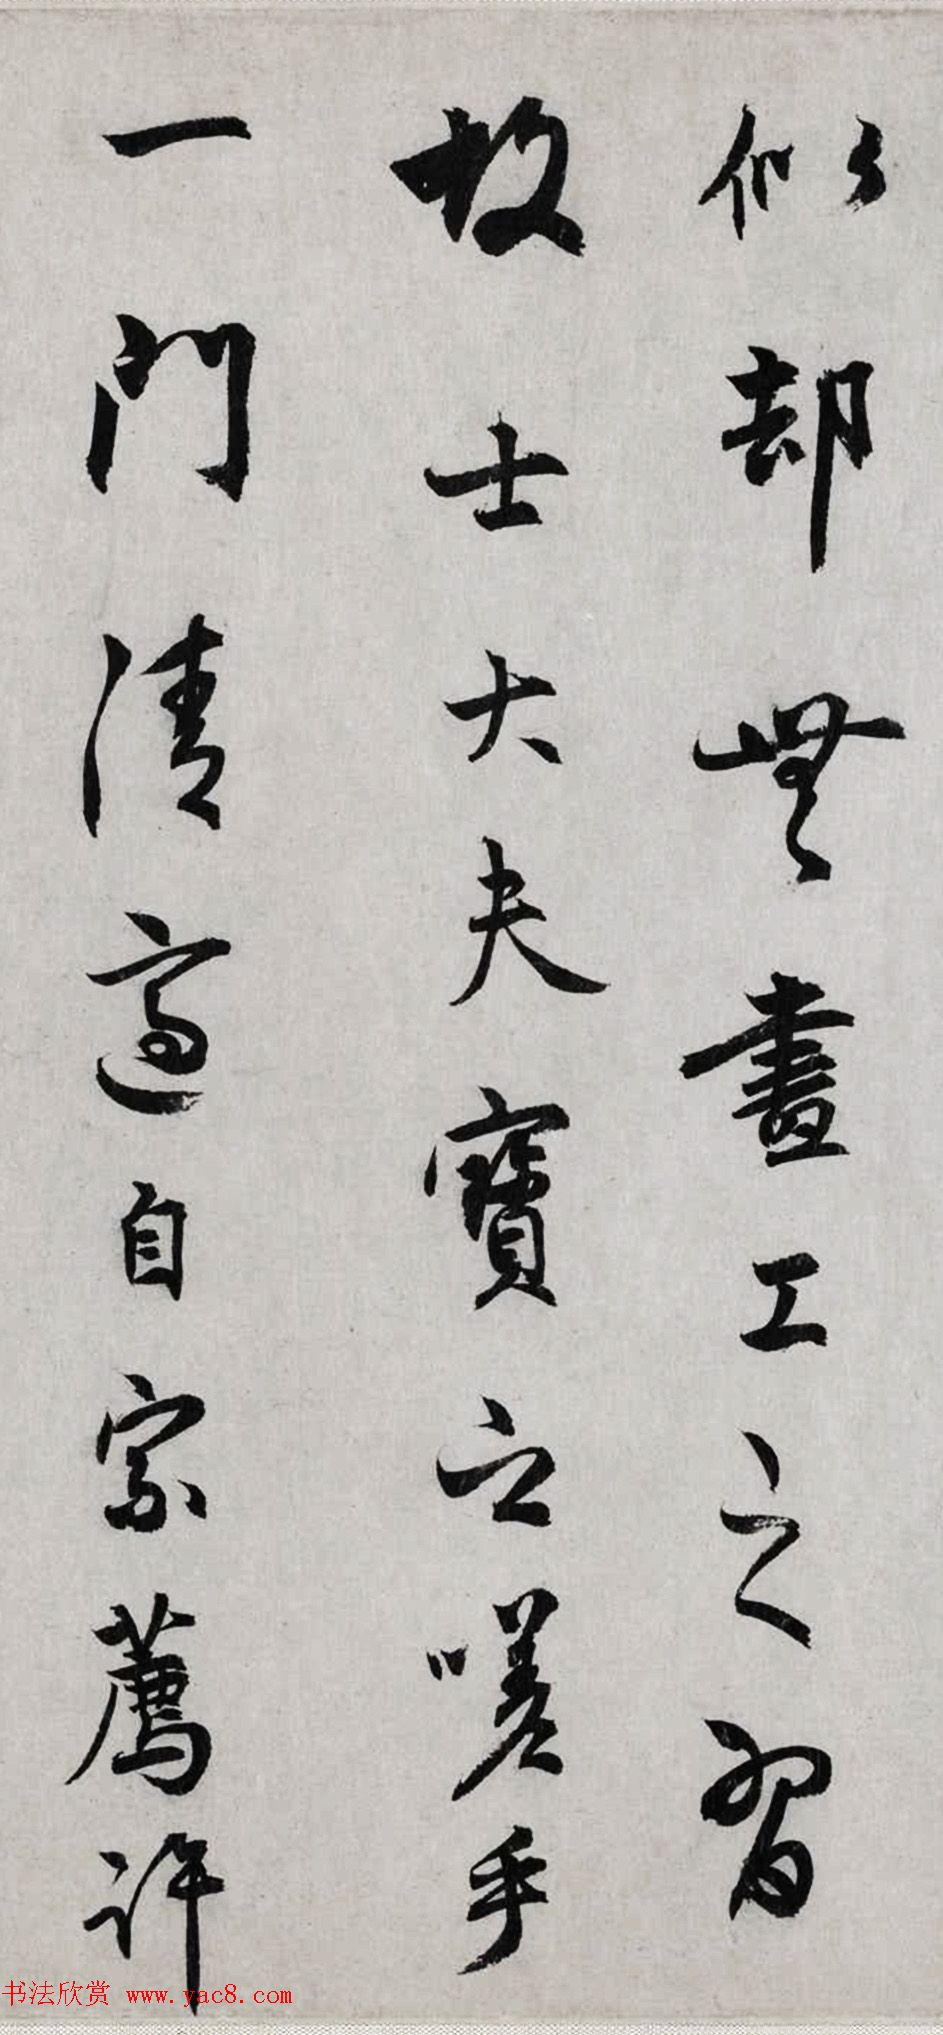 似却無畫工之習
故士大夫寶之嗟乎
一門清適自宗薦許
书法欣赏 www.yac8.com